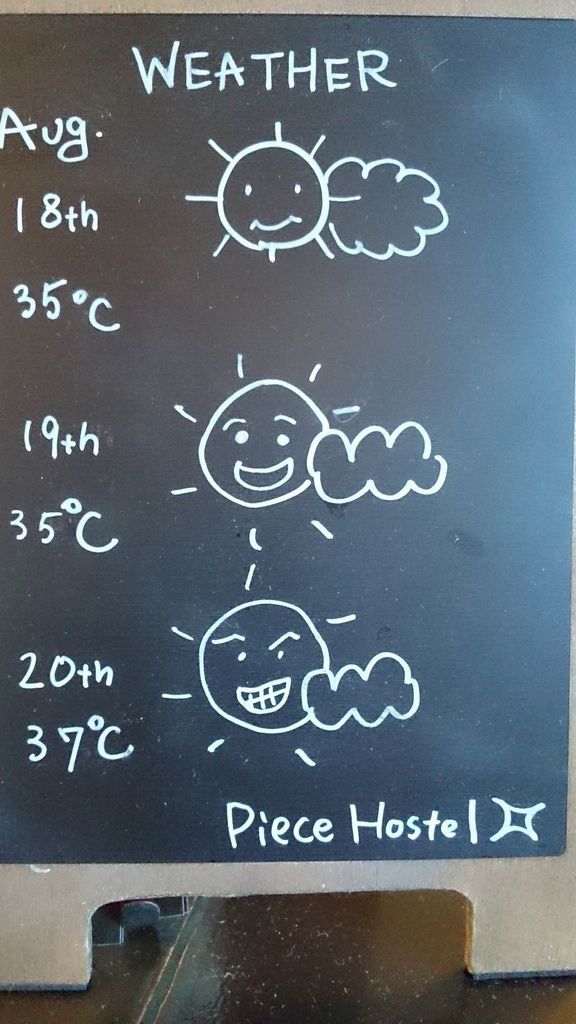 WEATHER
Aug.
18th
35°C
19th
35°C
20th
37°C
Piece Hostel